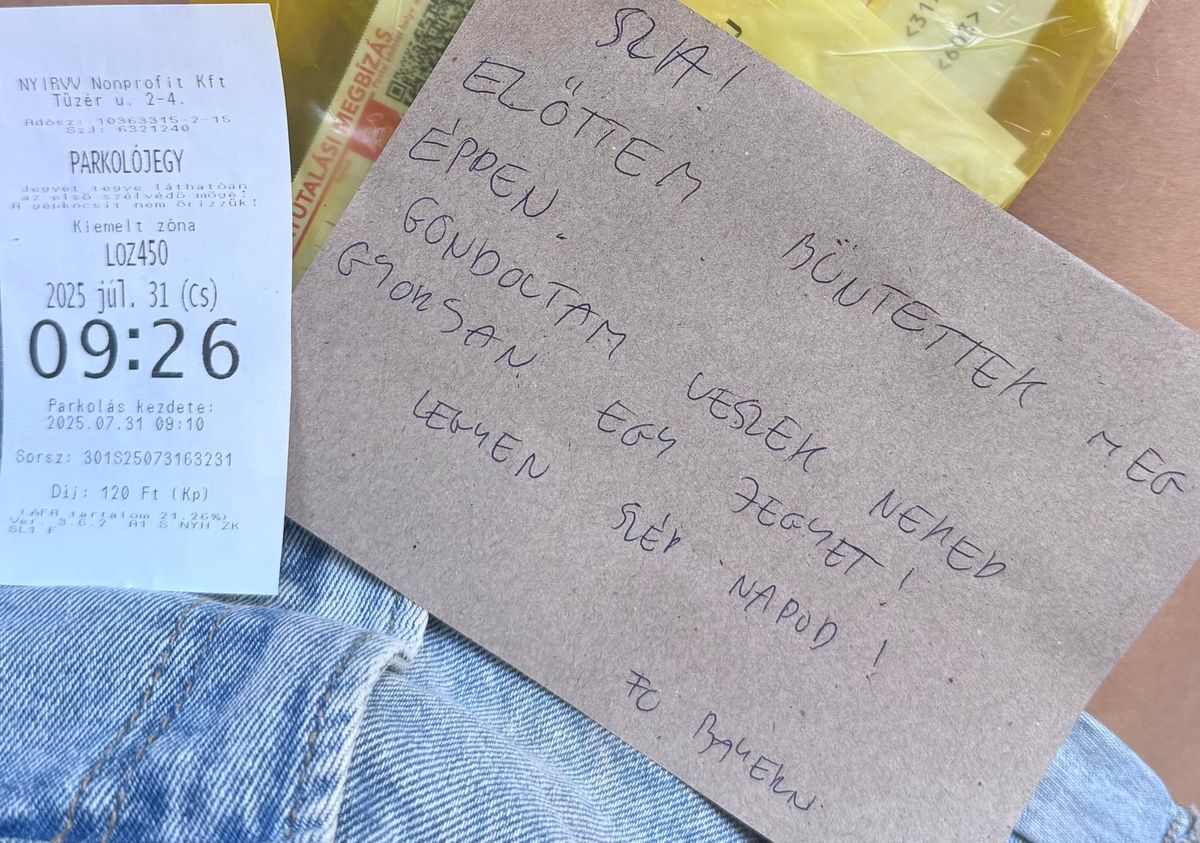 NYIRVV Nonprofit Kft
Tüzér u. 2-4.
Adósz: 10363315-2-15
SZJ: 6321240
PARKOLÓJEGY
Jegyet tegye láthatóan
az első szélvédő mögé!
A gépkocsit nem őrizzük!
Kiemelt zóna
LOZ450
2025 júl. 31 (Cs)
09:26
Parkolás kezdete:
2025.07.31 09:10
Sorsz: 301S25073163231
Díj: 120 Ft (Kp)
(ÁFA tartalom 21.26%)
Ver. 3.6.2 A1 S NYH ZK
SL1 F
UTALÁSI MEGBÍZÁS
SZIA!
ELŐTTEM BÜNTETTEK MEG
ÉPPEN.
GONDOLTAM VESZEK NEKED
GYORSAN EGY JEGYET!
LEGYEN SZÉP NAPOD!
FC BAYERN
<003>